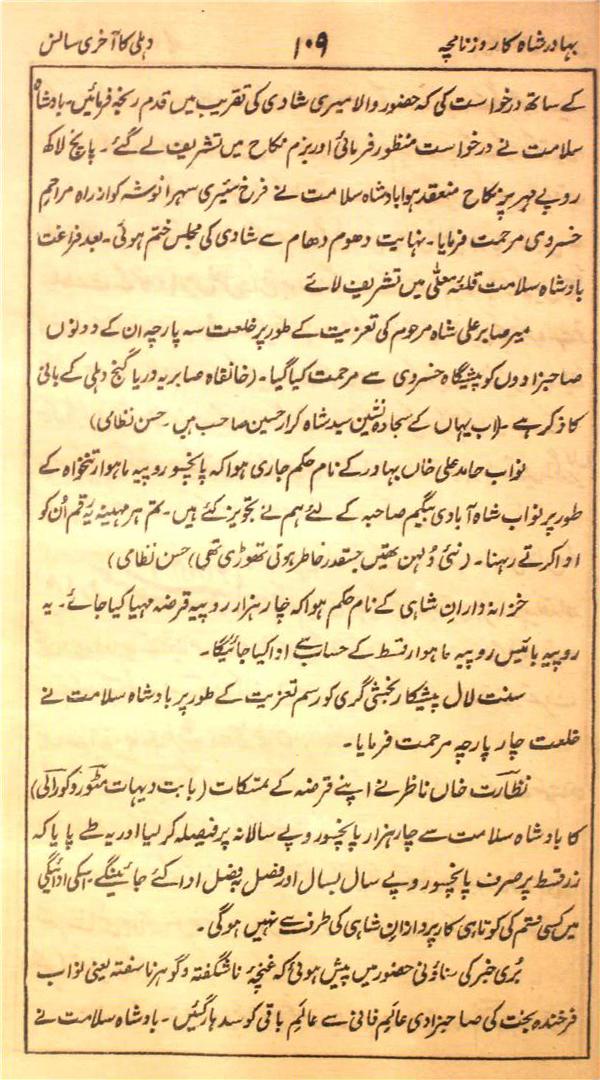 بہادر شاہ کا روزنامچہ ۱۰۹ دہلی کا آخری سانس
کے ساتھ درخواست کی کہ حضور والا میری شادی کی تقریب میں قدم رنجہ فرمائیں۔ بادشاہ
سلامت نے درخواست منظور فرمائی اور بزم نکاح میں تشریف لے گئے۔ پانچ لاکھ
روپے مہر پر نکاح منعقد ہوا بادشاہ سلامت نے فرخ سئیری سہرا نوشہ کو از راہ مراحم
خسروی مرحمت فرمایا۔ نہایت دھوم دھام سے شادی کی مجلس ختم ہوئی۔ بعد فراغت
بادشاہ سلامت قلعہ معلّٰی میں تشریف لائے
میر صابر علی شاہ مرحوم کی تعزیت کے طور پر خلعت سہ پارچہ ان کے دونوں
صاحبزادوں کو پیشگاہ خسروی سے مرحمت کیا گیا۔ (خانقاہ صابریہ دریا گنج دہلی کے بانی
کا ذکر ہے۔ اب یہاں کے سجادہ نشین سید شاہ کرار حسین صاحب ہیں۔ حسن نظامی)
نواب حامد علی خاں بہادر کے نام حکم جاری ہوا کہ پانچسو روپیہ ماہوار تنخواہ کے
طور پر نواب شاہ آبادی بیگم صاحبہ کے لئے ہم نے تجویز کئے ہیں۔ تم ہر مہینہ یہ رقم اُن کو
ادا کرتے رہنا۔ (نئی دُلہن تھیں جسقدر خاطر ہوئی تھوڑی تھی) حسن نظامی)
خزانہ دارانِ شاہی کے نام حکم ہوا کہ چار ہزار روپیہ قرضہ مہیا کیا جائے۔ یہ
روپیہ بائیس روپیہ ماہوار قسط کے حساب سے ادا کیا جائیگا۔
سنت لال پیشکار بخشی گری کو رسم تعزیت کے طور پر بادشاہ سلامت نے
خلعت چار پارچہ مرحمت فرمایا۔
نظارت خاں ناظر نے اپنے قرضہ کے تمسکات (بابت دیہات
کا بادشاہ سلامت سے چار ہزار پانچسو روپے سالانہ پر فیصلہ کر لیا اور یہ طے پا یا کہ
زر قسط پر صرف پانچسو روپے سال بسال اور فصل بفصل ادا کئے جائینگے۔ اسکی ادائیگی
میں کسی قسم کی کوتاہی کارپردازانِ شاہی کی طرف سے نہیں ہوگی۔
بُری خبر کی سناؤنی حضور میں پیش ہوئی کہ غنچۂ ناشگفتہ و گوہر ناسفتہ یعنی نواب
فرخندہ بخت کی صاحبزادی عالم فانی سے عالم باقی کو سدھار گئیں۔ بادشاہ سلامت نے